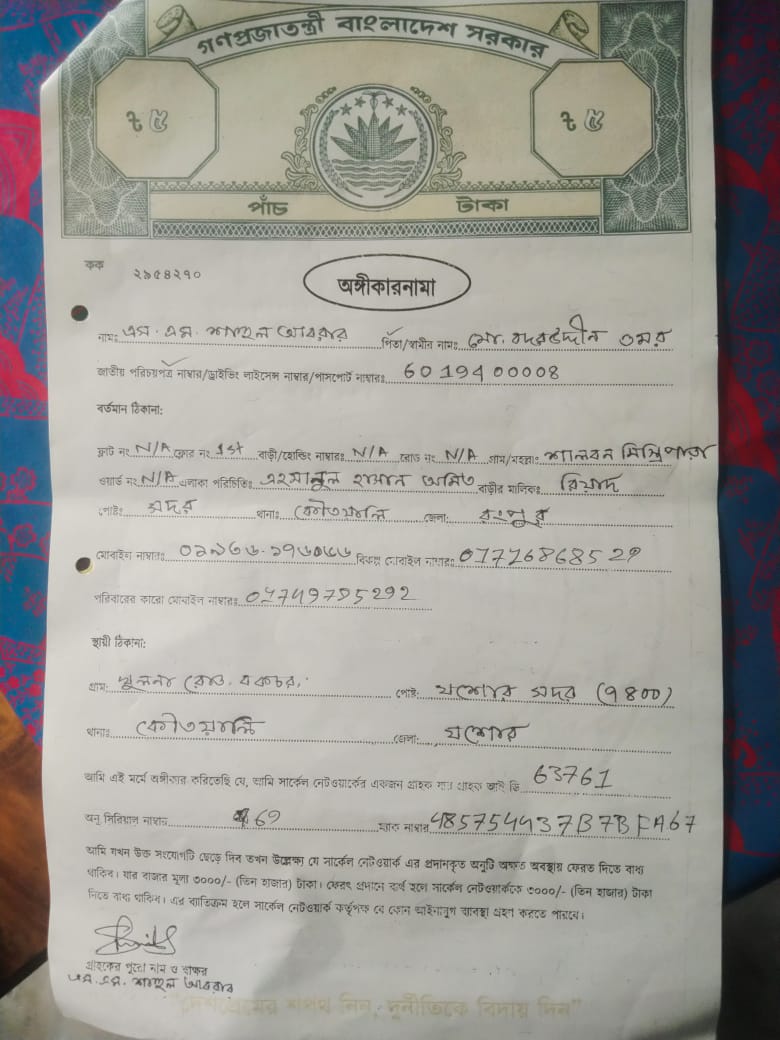 গণপ্রজাতন্ত্রী বাংলাদেশ সরকার
৳ ৫
৳ ৫
পাঁচ টাকা
কক ২৯৫৪২৭০
অঙ্গীকারনামা
নামঃ এস. এম. শাহুল আবরার পিতা/স্বামীর নামঃ মো. বদরউদ্দীন ওমর
জাতীয় পরিচয়পত্র নাম্বার/ড্রাইভিং লাইসেন্স নাম্বার/পাসপোর্ট নাম্বারঃ 6019400008
বর্তমান ঠিকানা:
ফ্লাট নং N/A ফ্লোর নং 1st বাড়ী/হোল্ডিং নাম্বারঃ N/A রোড নং N/A গ্রাম/মহল্লাঃ শালবন মিস্ত্রিপাড়া
ওয়ার্ড নং N/A এলাকা পরিচিতিঃ এহসানুল হাসান অমিত বাড়ীর মালিকঃ রিয়াদ
পোষ্টঃ সদর থানাঃ কোতয়ালি জেলা: রংপুর
মোবাইল নাম্বারঃ বিকল্প মোবাইল নাম্বারঃ
পরিবারের কারো মোবাইল নাম্বারঃ
স্থায়ী ঠিকানা:
গ্রাম: খুলনা রোড, বকচর, পোষ্ট: যশোর সদর (7400)
থানাঃ কোতয়ালি জেলা: যশোর
আমি এই মর্মে অঙ্গীকার করিতেছি যে, আমি সার্কেল নেটওয়ার্কের একজন গ্রাহক যার গ্রাহক আই ডি 63761
অনু সিরিয়াল নাম্বার 69 ম্যাক নাম্বার 485754437B7BFA67
আমি যখন উক্ত সংযোগটি ছেড়ে দিব তখন উল্লেক্ষ্য যে সার্কেল নেটওয়ার্ক এর প্রদানকৃত অনুটি অক্ষত অবস্থায় ফেরত দিতে বাধ্য
থাকিব। যার বাজার মূল্য ৩০০০/- (তিন হাজার) টাকা। ফেরৎ প্রদানে ব্যর্থ হলে সার্কেল নেটওয়ার্ককে ৩০০০/- (তিন হাজার) টাকা
দিতে বাধ্য থাকিব। এর ব্যতিক্রম হলে সার্কেল নেটওয়ার্ক কর্তৃপক্ষ যে কোন আইনানুগ ব্যবস্থা গ্রহণ করতে পারবে।
গ্রাহকের পুরো নাম ও স্বাক্ষর
এস. এম. শাহুল আবরার
"দেশপ্রেমের শপথ নিন, দুর্নীতিকে বিদায় দিন"